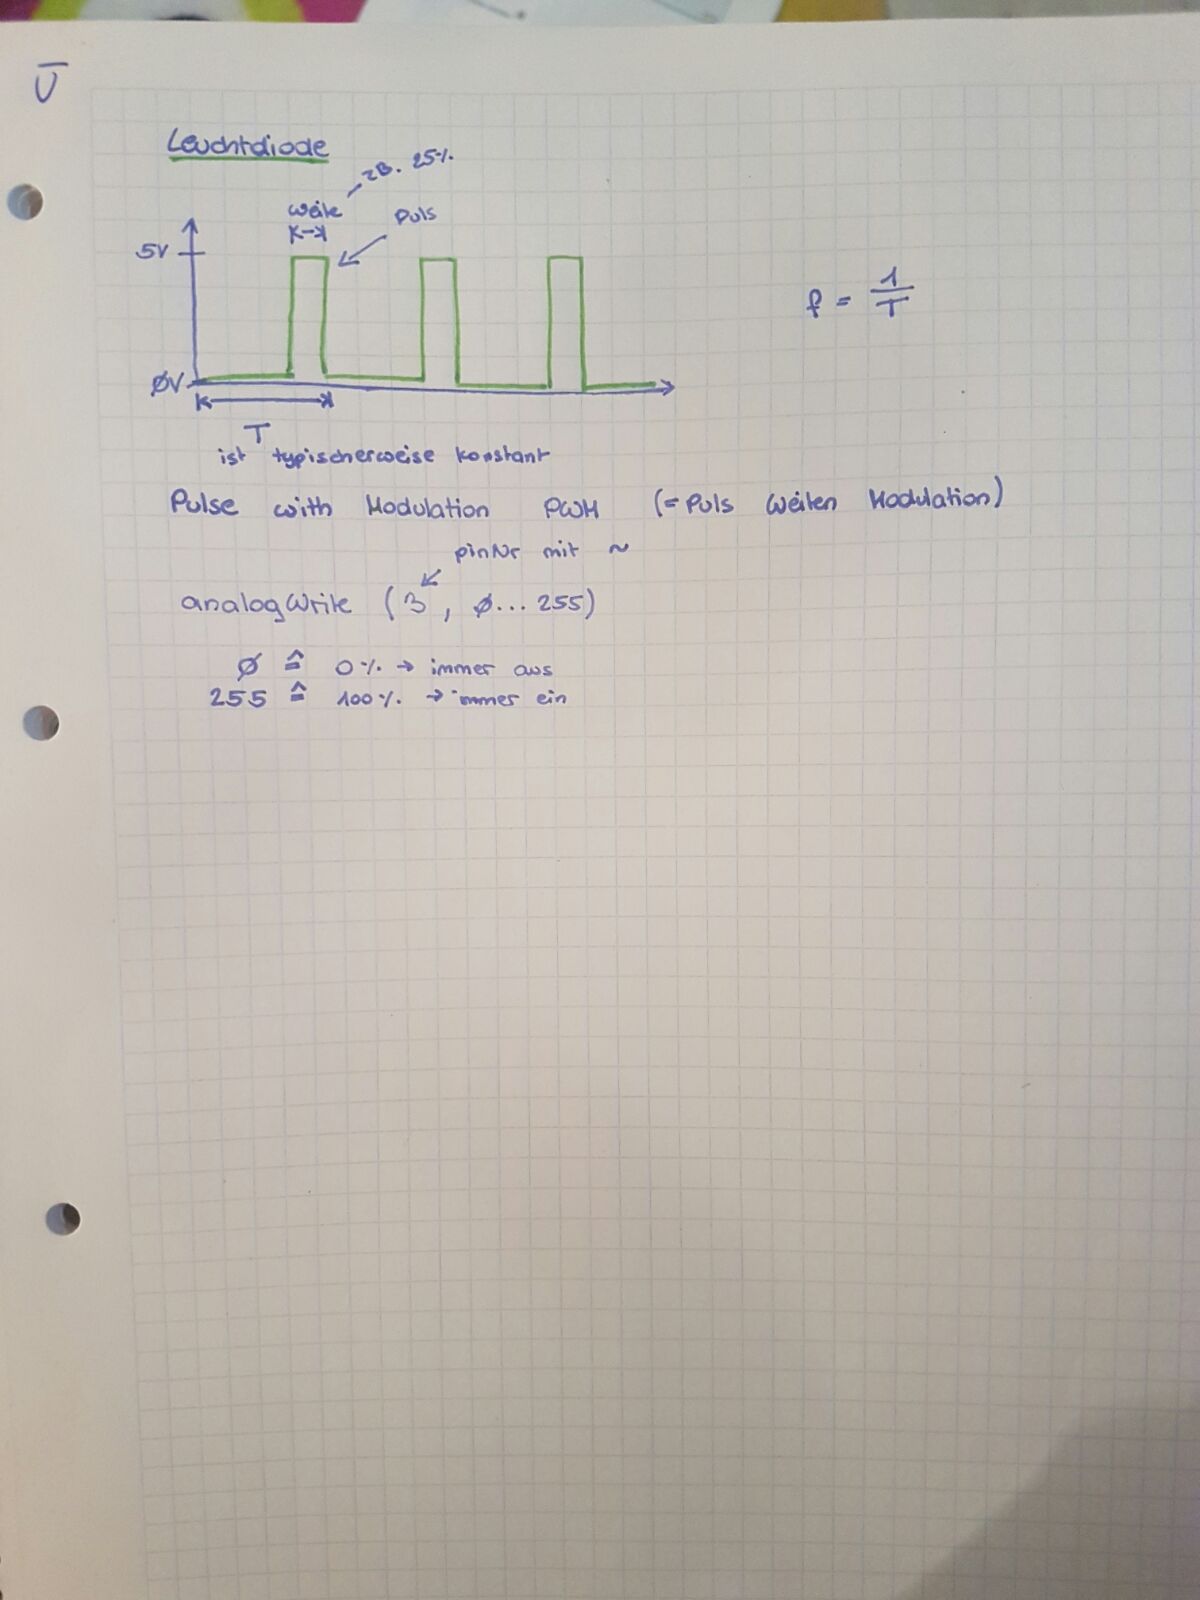 Ū
Leuchtdiode
zB. 25%
Weite
Puls
5V
f = 1/T
ØV
T
ist typischerweise konstant
Pulse with Modulation PWM (= Puls Weiten Modulation)
pinNr mit ~
analogWrite (3, Ø... 255)
Ø ≙ 0% → immer aus
255 ≙ 100% → immer ein